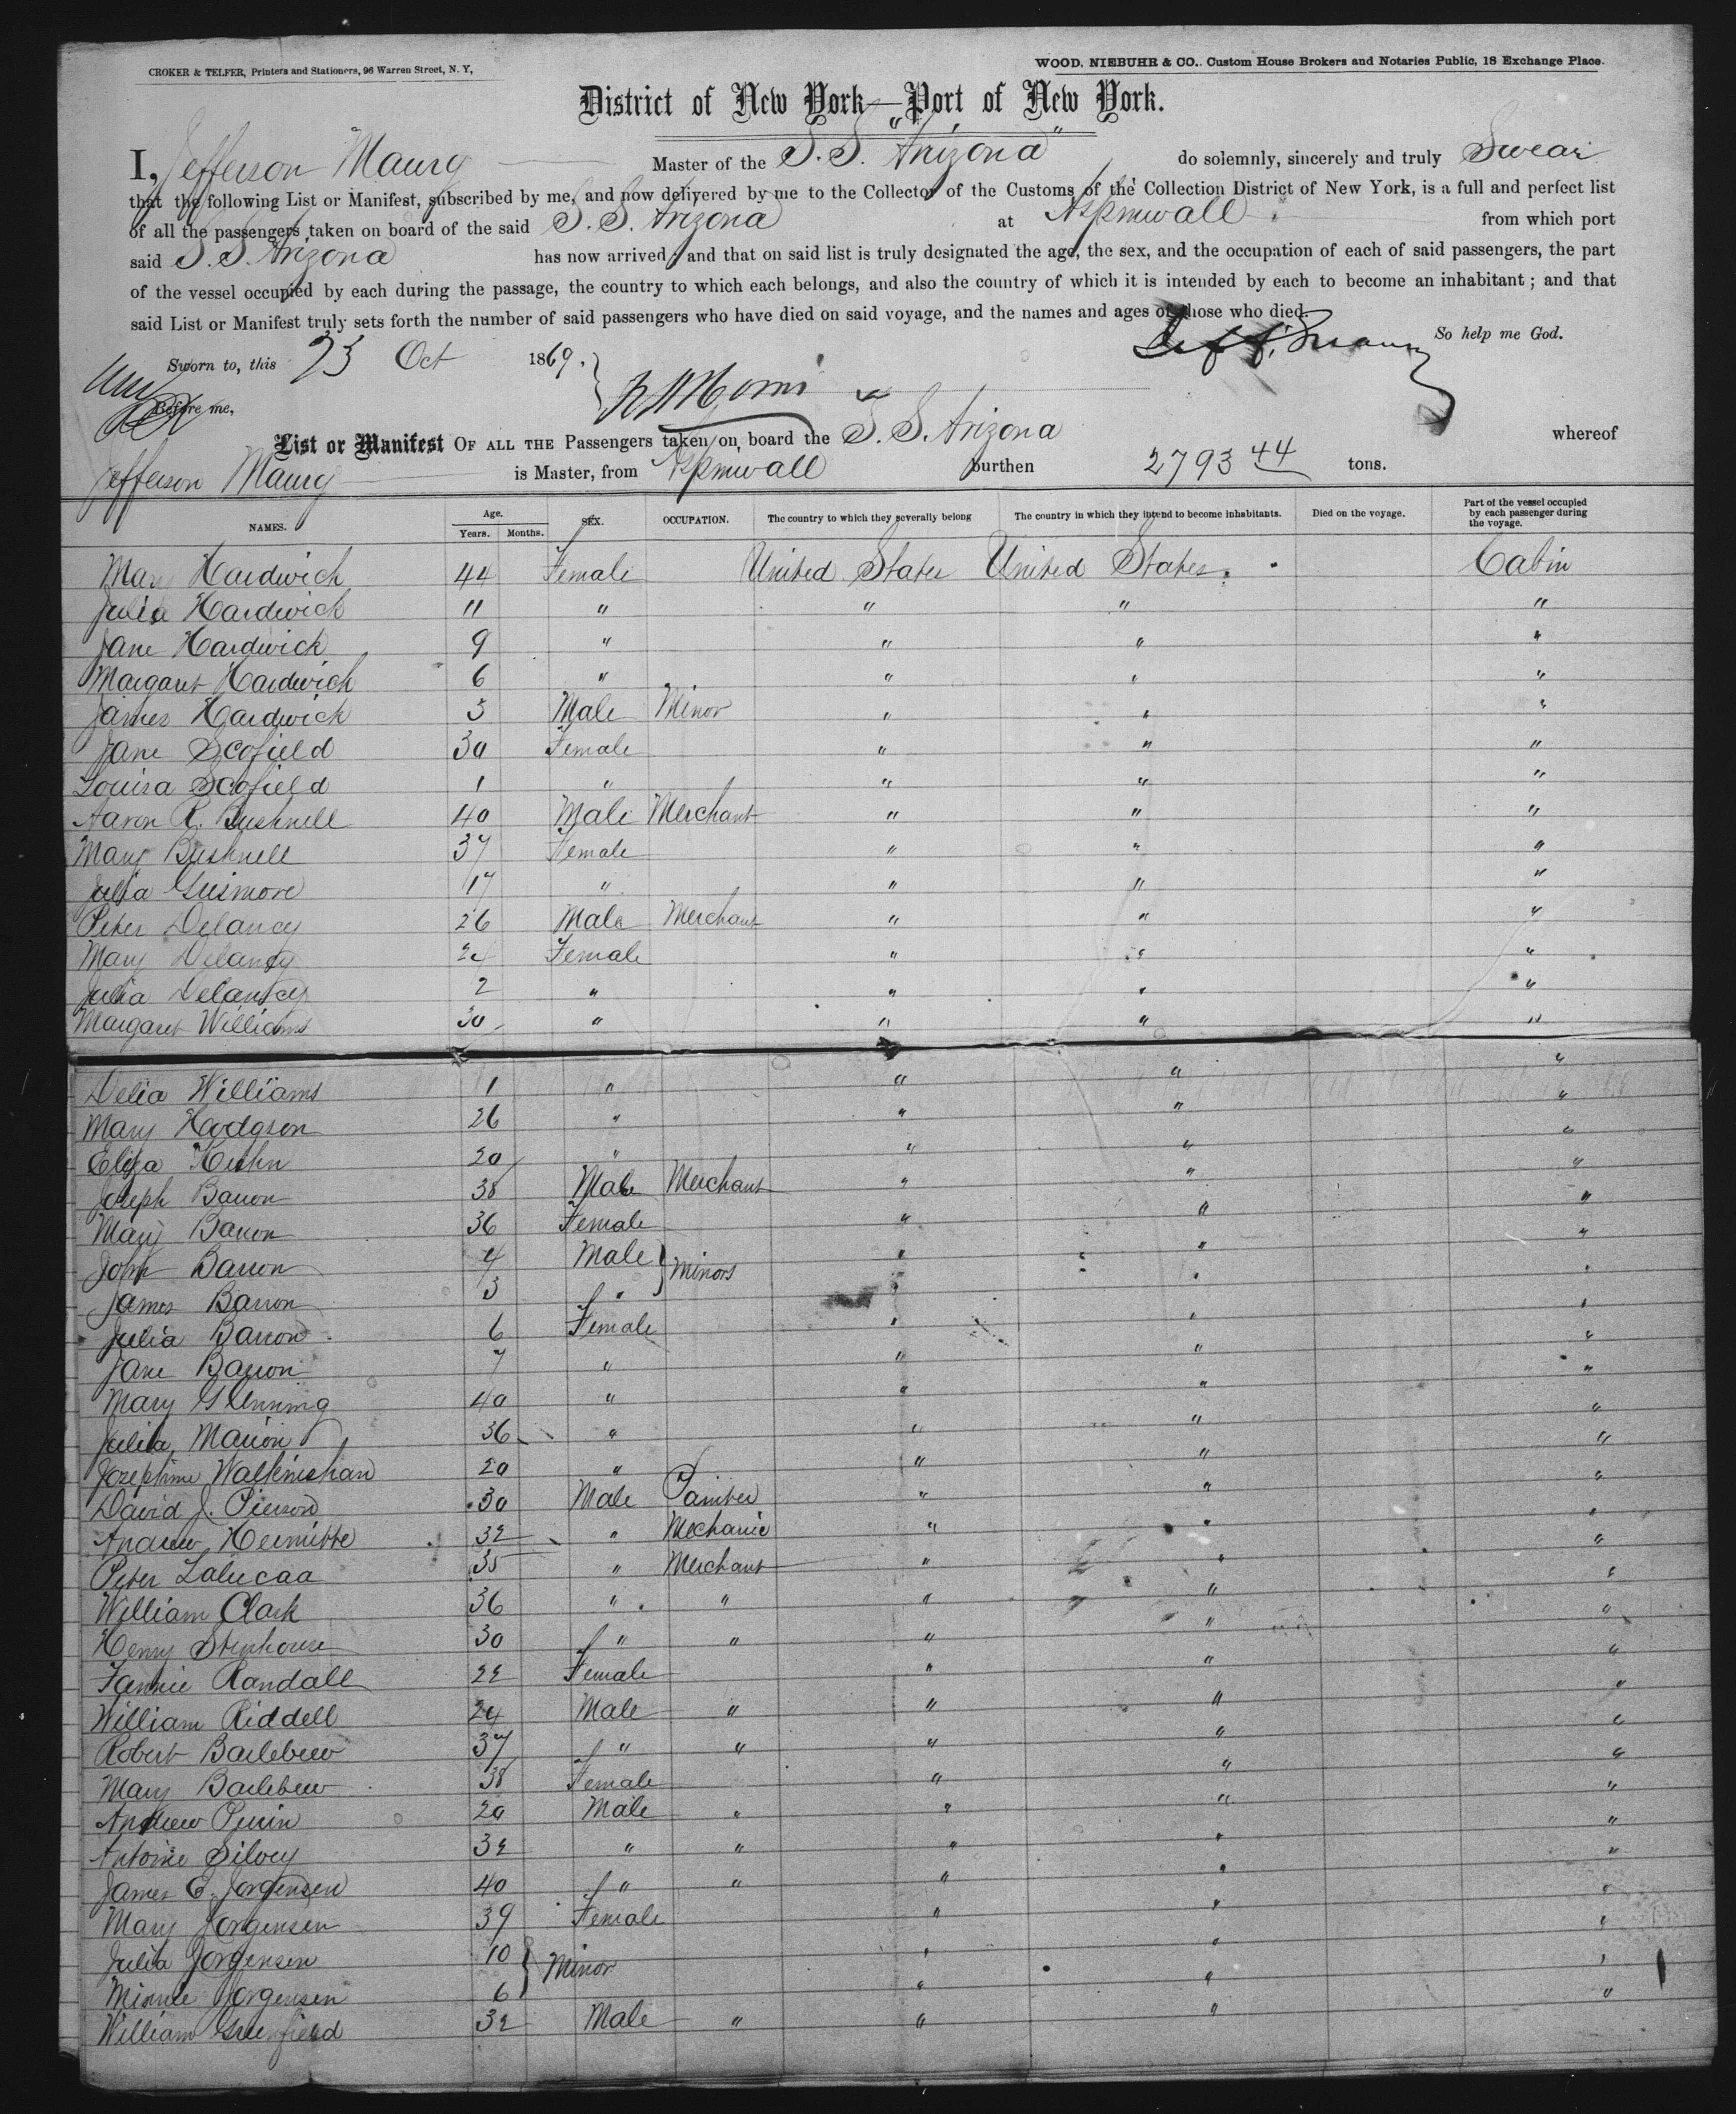 CROKER & TELFER, Printers and Stationers, 96 Warren Street, N. Y,
WOOD, NIEBUHR & CO.. Custom House Brokers and Notaries Public, 18 Exchange Place.
District of New York—Port of New York.
I, Jefferson Maury Master of the S. S. "Arizona" do solemnly, sincerely and truly Swear
that the following List or Manifest, subscribed by me, and now delivered by me to the Collector of the Customs of the Collection District of New York, is a full and perfect list
of all the passengers taken on board of the said S. S. Arizona at Aspinwall from which port
said S. S. Arizona has now arrived; and that on said list is truly designated the age, the sex, and the occupation of each of said passengers, the part
of the vessel occupied by each during the passage, the country to which each belongs, and also the country of which it is intended by each to become an inhabitant; and that
said List or Manifest truly sets forth the number of said passengers who have died on said voyage, and the names and ages of those who died.
So help me God.
Sworn to, this 23 Oct 1869. Jeff. Maury
Before me,
List or Manifest OF ALL THE Passengers taken on board the S. S. Arizona whereof
Jefferson Maury is Master, from Aspinwall burthen 2793 44 tons.
NAMES. Age. Years. Months. SEX. OCCUPATION. The country to which they severally belong The country in which they intend to become inhabitants. Died on the voyage. Part of the vessel occupied by each passenger during the voyage.
Mary Hardwich 44 Female United States United States. Cabin
Julia Hardwich 11 " " " "
Jane Hardwick 9 " " " "
Margaret Hardwich 6 " " " "
James Hardwick 3 Male Minor " " "
Jane Scofield 30 Female " " "
Louisa Scofield 1 " " " "
Aaron R. Bushnell 40 Male Merchant " " "
Mary Bushnell 37 Female " " "
Julia 17 " " " "
Peter Delancy 26 Male Merchant " " "
Mary Delancy 24 Female " " "
Julia Delancy 2 " " " "
Margaret Williams 30 " " " "
Delia Williams 1 " " " "
Mary Hodgson 26 " " " "
Eliza Kuhn 20 " " " "
Joseph Barron 38 Male Merchant " " "
Mary Barron 36 Female " " "
John Barron 4 Male } Minors " " "
James Barron 3 " " " "
Julia Barron 6 Female " " "
Jane Barron 7 " " " "
Mary Glenning 40 " " " "
Julia Marion 36 " " " "
Josephine Walkinshan 20 " " " "
David J. Pierson 30 Male Painter " " "
Andrew 32 " Mechanic " " "
Peter Lalucaa 35 " Merchant " " "
William Clark 36 " " " " "
Henry Stenhouse 30 " " " " "
Fannie Randall 22 Female " " "
William Riddell 24 Male " " " "
Robert Barlebew 37 " " " " "
Mary Barlebew 38 Female " " "
Andrew Perrin 20 Male " " " "
Antoine Silvey 32 " " " " "
James C. Jorgensen 40 " " " " "
Mary Jorgensen 39 Female " " "
Julia Jorgensen 10 } Minor " " "
Minnie Jorgensen 6 " " "
William Greenfield 32 Male " " " "